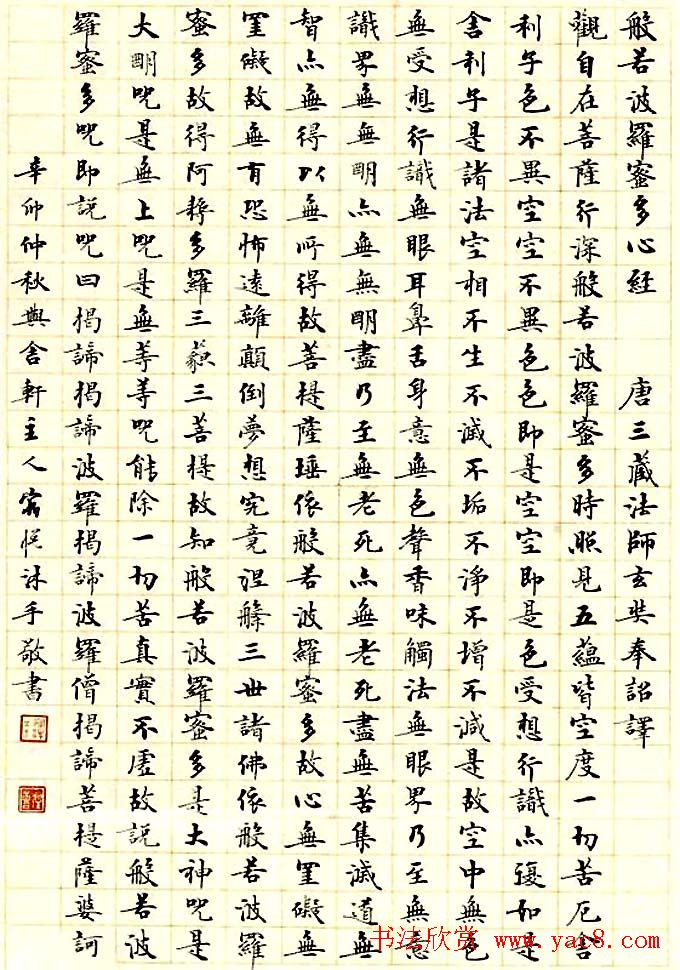 般若波羅蜜多心經 唐三藏法師玄奘奉詔譯
觀自在菩薩行深般若波羅蜜多時照見五蘊皆空度一切苦厄舍
利子色不異空空不異色色即是空空即是色受想行識亦復如是
舍利子是諸法空相不生不滅不垢不淨不增不減是故空中無色
無受想行識無眼耳鼻舌身意無色聲香味觸法無眼界乃至無意
識界無無明亦無無明盡乃至無老死亦無老死盡無苦集滅道無
智亦無得以無所得故菩提薩埵依般若波羅蜜多故心無罣礙無
罣礙故無有恐怖遠離顛倒夢想究竟涅槃三世諸佛依般若波羅
蜜多故得阿耨多羅三藐三菩提故知般若波羅蜜多是大神咒是
大明咒是無上咒是無等等咒能除一切苦真實不虛故說般若波
羅蜜多咒即說咒曰揭諦揭諦波羅揭諦波羅僧揭諦菩提薩婆訶
辛卯仲秋與舍軒主人悅沐手敬書
书法欣赏 www.yac8.com